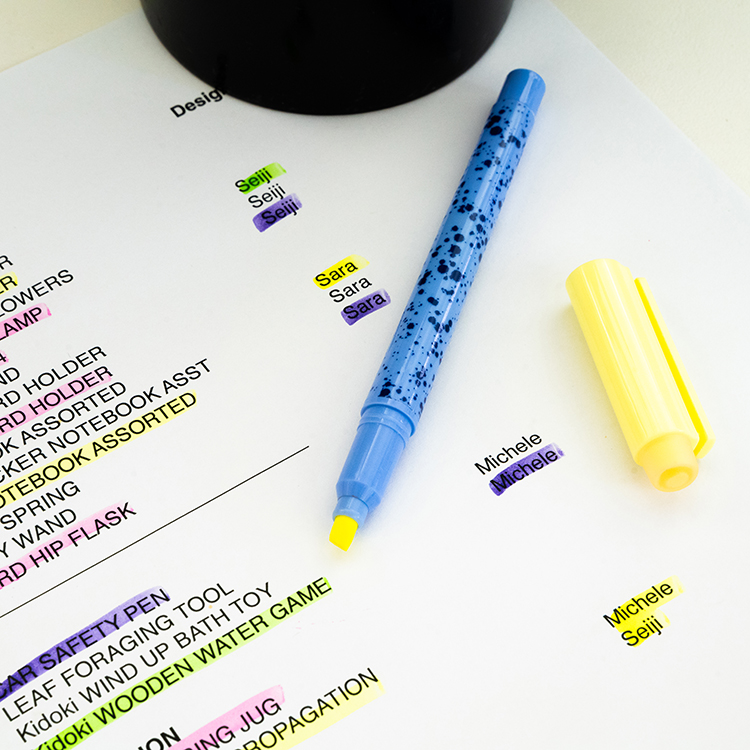 Desig
Seiji
Seiji
Seiji
Sara
Sara
Sara
R
ER
LOWERS
LAMP
4
ND
RD HOLDER
RD HOLDER
OK ASSORTED
CKER NOTEBOOK ASST
OTEBOOK ASSORTED
SPRING
Y WAND
RD HIP FLASK
Michele
Michele
Michele
Seiji
CAR SAFETY PEN
LEAF FORAGING TOOL
Kidoki WIND UP BATH TOY
Kidoki WOODEN WATER GAME
ION
ING JUG
PROPAGATION